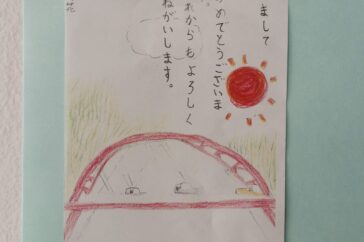 まして
めでとうございま
。
れからもよろしく
ねがいします。
花